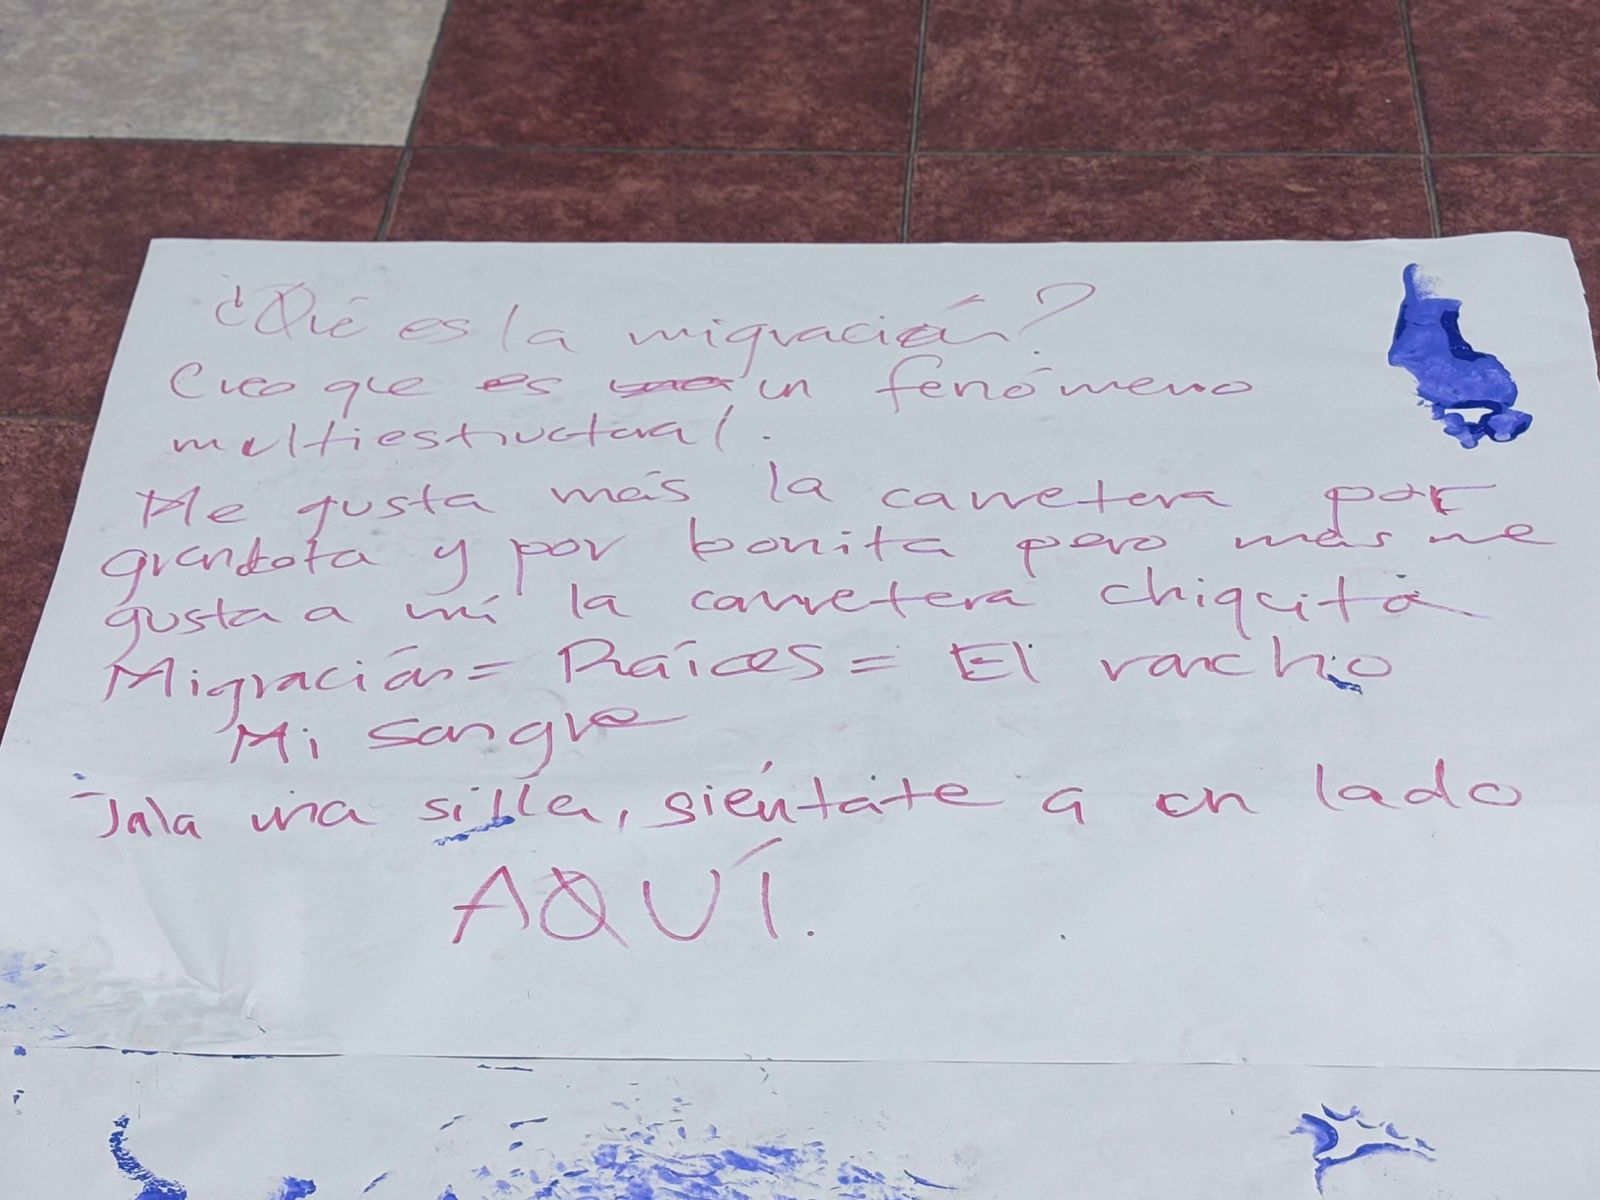 ¿Qué es la migración?
Creo que es un fenómeno
multiestructural.
Me gusta más la carretera por
grandota y por bonita pero más me
gusta a mí la carretera chiquita
Migración = Raíces = El rancho
Mi sangre
Jala una silla, siéntate a un lado
AQUÍ.